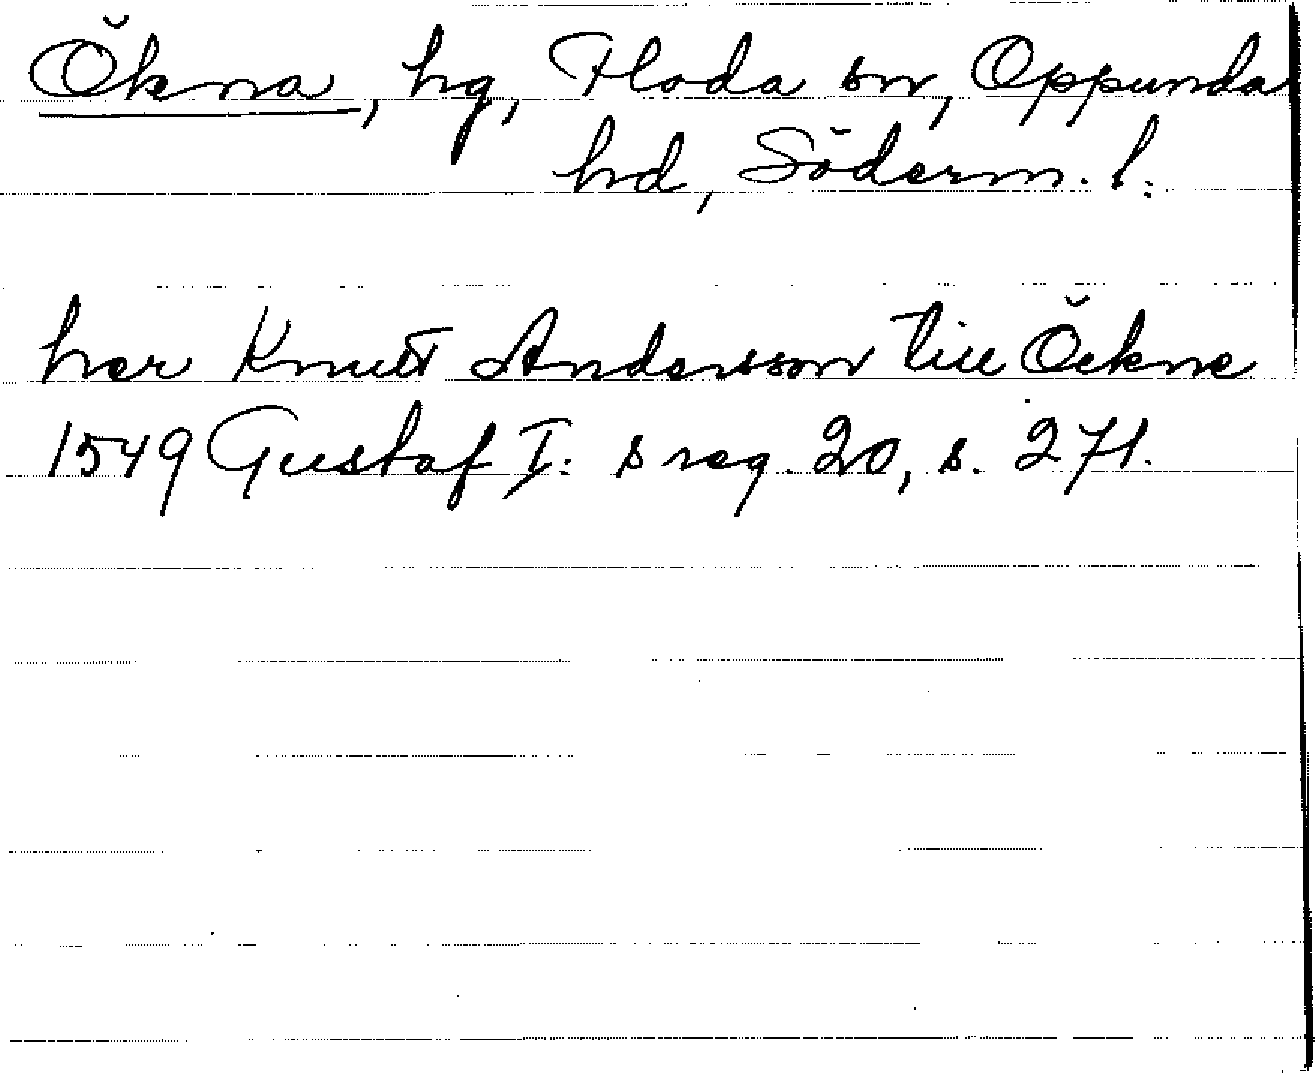 Ökna, hg, Floda sn, Oppunda
hd, Söderm. l:
her Knutt Andersson till Öckne
1549 Gustaf I: s reg. 20, s. 271.